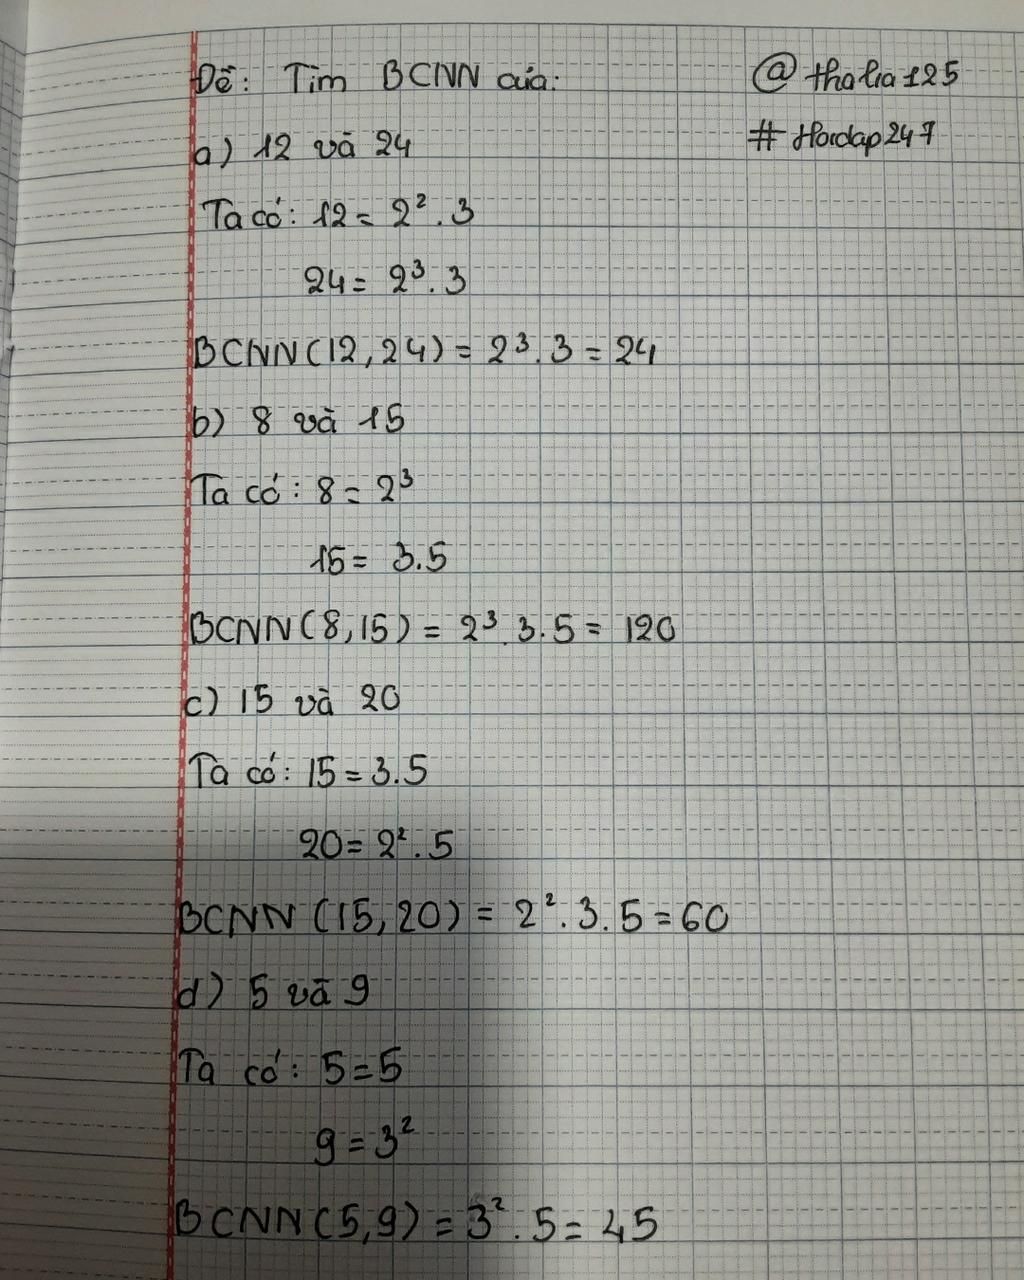 Đề: Tìm BCNN của: @thalia125
#Hoidap247
a) 12 và 24
Ta có: 12 = 2² . 3
24 = 2³. 3
BCNN(12,24) = 2³. 3 = 24
b) 8 và 15
Ta có: 8 = 2³
15 = 3.5
BCNN(8,15) = 2³. 3.5 = 120
c) 15 và 20
Ta có: 15 = 3.5
20 = 2². 5
BCNN (15,20) = 2². 3.5 = 60
d) 5 và 9
Ta có: 5=5
9 = 3²
BCNN(5,9) = 3². 5 = 45